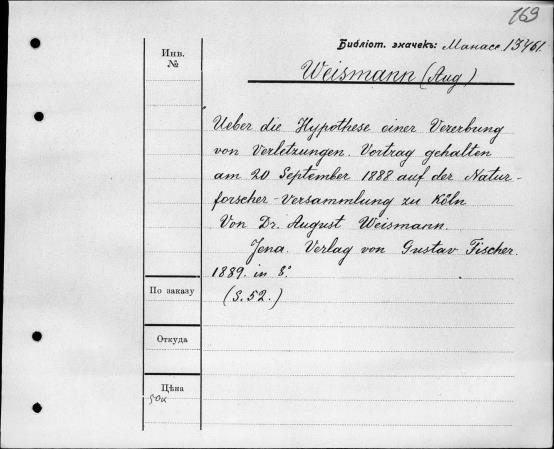 169
Библіот. значекъ: Манасс. 13461.
Инв.
№
Weismann (Aug)
Ueber die Hypothese einer Vererbung
von Verletzungen. Vortrag gehalten
am 20 September 1888 auf der Natur-
forscher-Versammlung zu Köln
Von Dr. August Weismann.
Jena. Verlag von Gustav Fischer.
1889. in 8°
(S. 52.)
По заказу
Откуда
Цѣна
50к